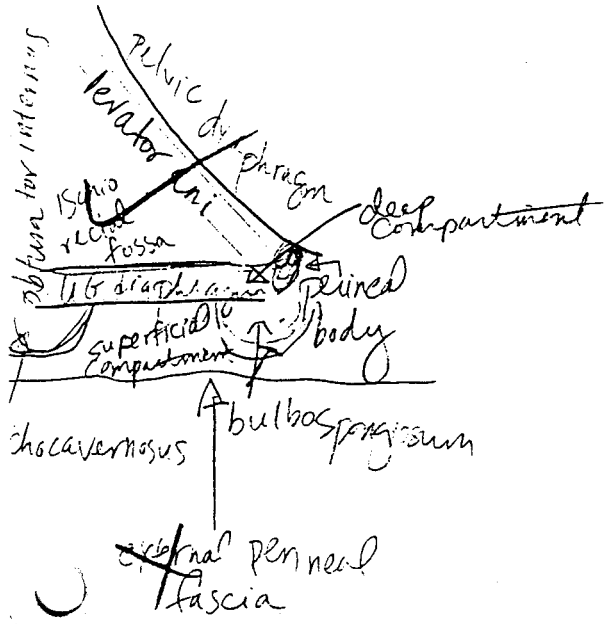 obturator internus
pelvic diaphragm
levator ani
Ischio
rectal
fossa
deep
compartment
UG diaphragm
perineal
body
superficial
compartment
bulbospongiosum
chocavernosus
external perineal
fascia